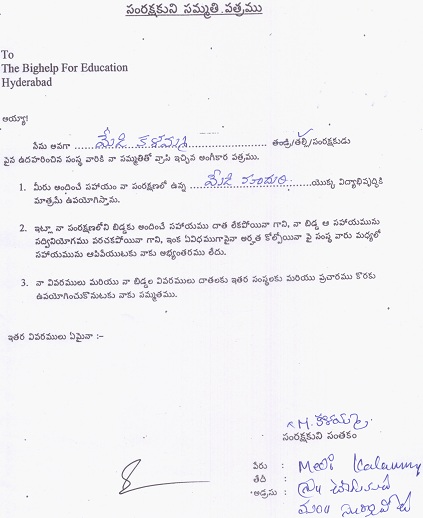 సంరక్షకుని సమ్మతి పత్రము
To
The Bighelp For Education
Hyderabad
అయ్యా!
నేను అనగా ..... మేడి కళమ్మ ..... తండ్రి/తల్లి/సంరక్షకుడు
పైన ఉదహరించిన సంస్థ వారికి నా సమ్మతితో వ్రాసి ఇచ్చిన అంగీకార పత్రము.
1. మీరు అందించే సహాయం నా సంరక్షణలో ఉన్న ..... మేడి ..... యొక్క విద్యాభివృద్ధికి
మాత్రమే ఉపయోగిస్తాను.
2. ఇట్లా నా సంరక్షణలోని బిడ్డకు అందించే సహాయము దాత లేకపోయినా గాని, నా బిడ్డ ఆ సహాయమును
సద్వినియోగము పరచకపోయినా గాని, ఇంక ఏవిధముగానైనా అర్హత కోల్పోయినా పై సంస్థ వారు మధ్యలో
సహాయమును ఆపివేయుటకు నాకు అభ్యంతరము లేదు.
3. నా వివరములు మరియు నా బిడ్డల వివరములు దాతలకు ఇతర సంస్థలకు మరియు ప్రచారము కొరకు
ఉపయోగించుకొనుటకు నాకు సమ్మతము.
ఇతర వివరములు ఏమైనా :–
సంరక్షకుని సంతకం
పేరు : Medi
తేది :
అడ్రసు :